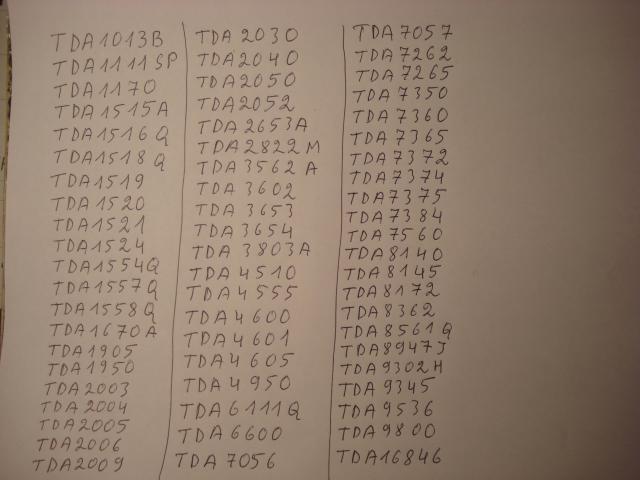 TDA1013B
TDA1111SP
TDA1170
TDA1515A
TDA1516Q
TDA1518Q
TDA1519
TDA1520
TDA1521
TDA1524
TDA1554Q
TDA1557Q
TDA1558Q
TDA1670A
TDA1905
TDA1950
TDA2003
TDA2004
TDA2005
TDA2006
TDA2009
TDA2030
TDA2040
TDA2050
TDA2052
TDA2653A
TDA2822M
TDA3562A
TDA3602
TDA3653
TDA3654
TDA3803A
TDA4510
TDA4555
TDA4600
TDA4601
TDA4605
TDA4950
TDA6111Q
TDA6600
TDA7056
TDA7057
TDA7262
TDA7265
TDA7350
TDA7360
TDA7365
TDA7372
TDA7374
TDA7375
TDA7384
TDA7560
TDA8140
TDA8145
TDA8172
TDA8362
TDA8561Q
TDA8947J
TDA9302H
TDA9345
TDA9536
TDA9800
TDA16846